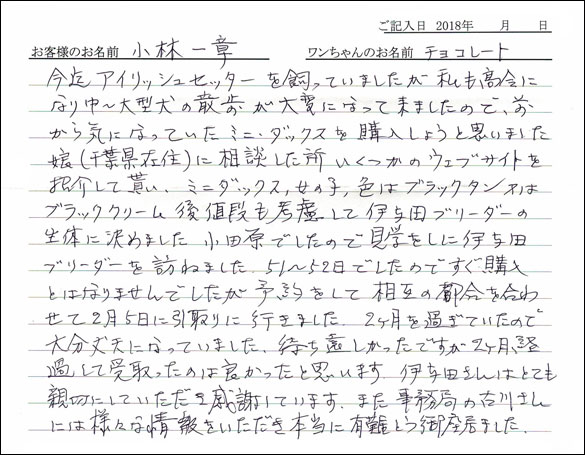 ご記入日 2018年 月 日
お客様のお名前 小林一章 ワンちゃんのお名前 チョコレート
今迄アイリッシュセッターを飼っていましたが私も高令に
なり中〜大型犬の散歩が大変になって来ましたので、前
から気になっていたミニ・ダックスを購入しようと思いました
娘(千葉県在住)に相談した所いくつかのウェブサイトを
紹介して貰い、ミニダックス,女の子,色はブラックタン又は
ブラッククリーム 後値段も考慮して伊与田ブリーダーの
生体に決めました 小田原でしたので見学をしに伊与田
ブリーダーを訪ねました.51〜52日でしたのですぐ購入
とはなりませんでしたが予約をして相互の都合を合わ
せて2月5日に引取りに行きました.2ヶ月を過ぎていたので
大分丈夫になっていました.待ち遠しかったですが2ヶ月経
過して受取ったのは良かったと思います 伊与田さんはとても
親切にしていただき感謝しています.また事務局の古川さん
には様々な情報をいただき本当に有難とう御座居ました.